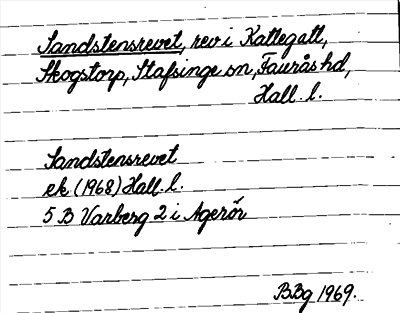 Sandstensrevet, rev i Kattegatt,
Skogstorp, Stafsinge sn, Faurås hd,
Hall. l.
Sandstensrevet
ek (1968) Hall. l.
5 B Varberg 2 i Agerör
BBg 1969.